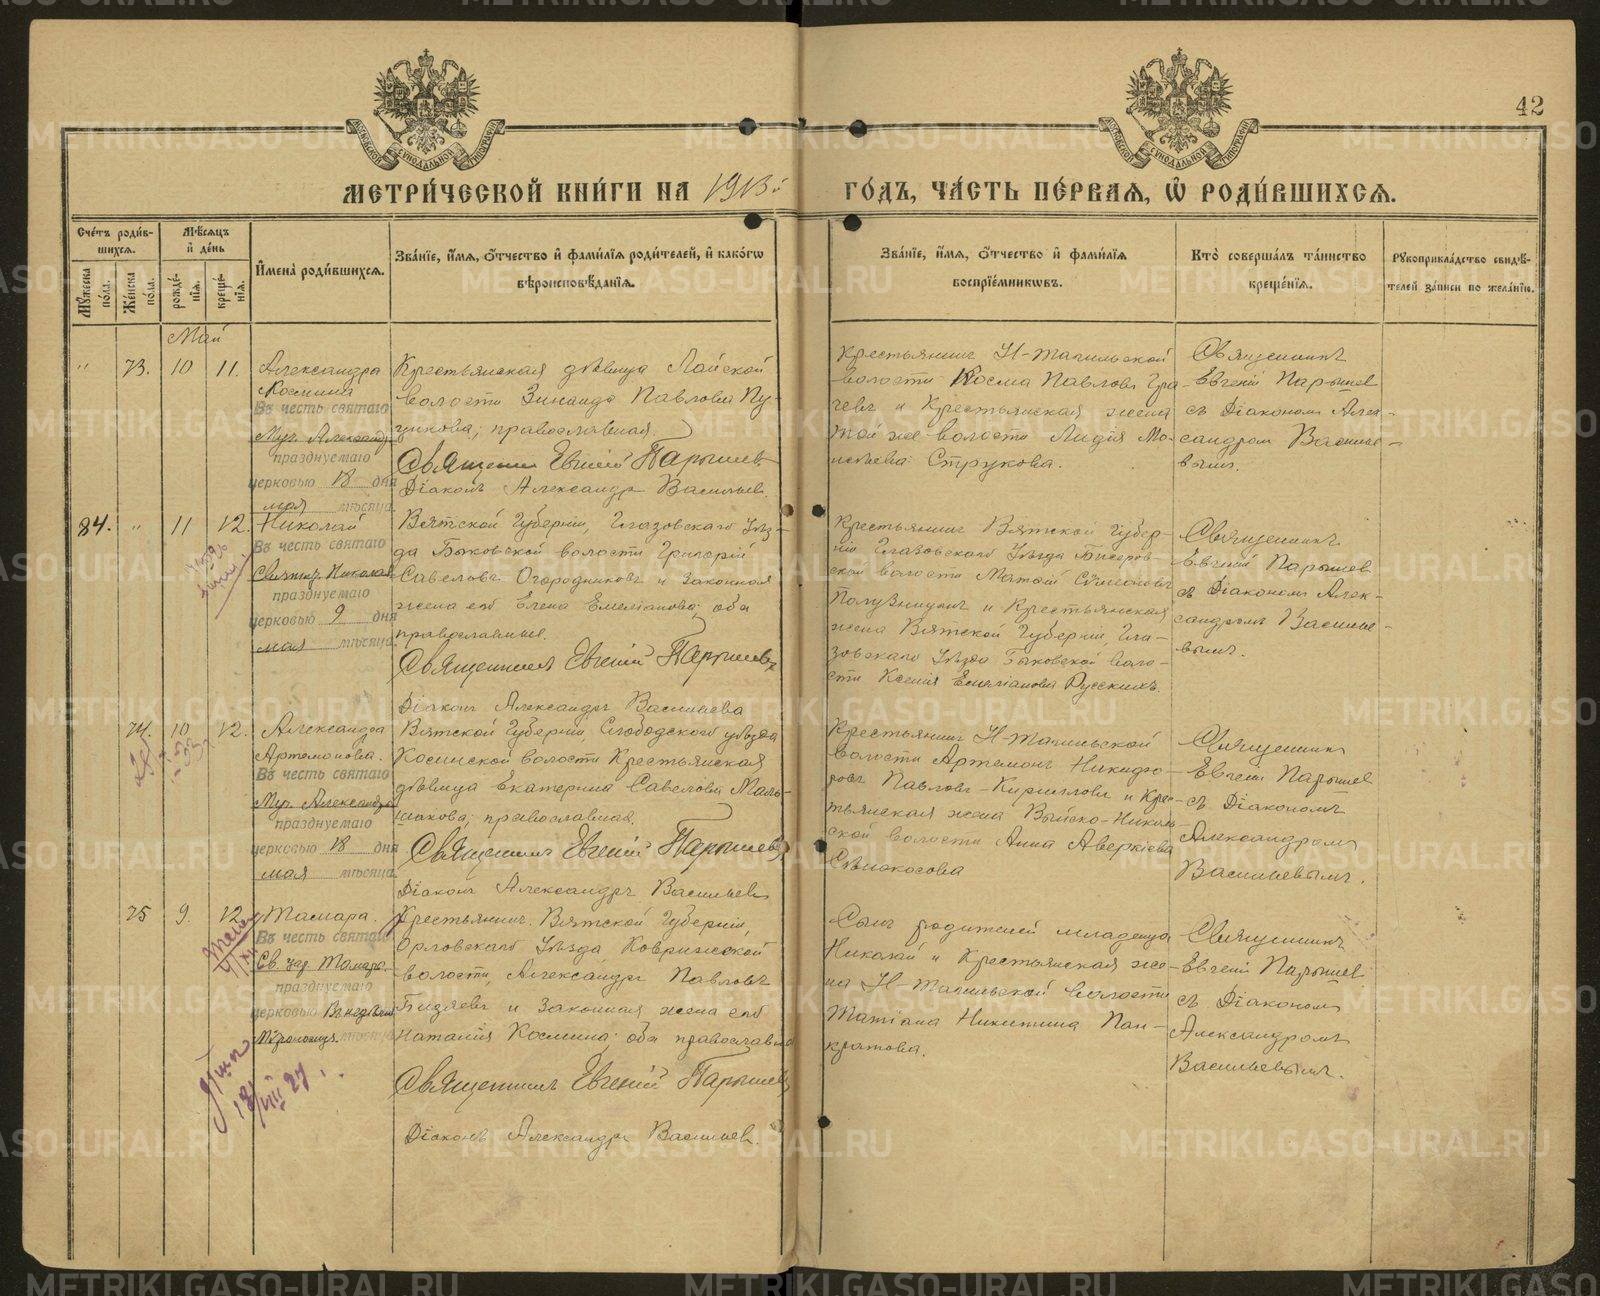 42
МОСКОВСКОЙ СѴНОДАЛЬНОЙ ТИПОГРАФІИ
МОСКОВСКОЙ СѴНОДАЛЬНОЙ ТИПОГРАФІИ
МЕТРИ́ЧЕСКОЙ КНИ́ГИ НА 1913й ГО́ДЪ, ЧА́СТЬ ПЕ́РВАЯ, Ѽ РОДИ́ВШИХСЯ.
Сче́тъ роди́вшихся.
Мꙋ́жеска по́ла.
Же́нска по́ла.
Мѣ́сяцъ и҆ де́нь
рожде́нїя.
креще́нїя.
И҆мена̀ роди́вшихся.
Зва́нїе, и҆́мя, ѻ҆́тчество и҆ фами́лїя роди́телей, и҆ како́гѡ вѣроисповѣ́данїя.
Зва́нїе, и҆́мя, ѻ҆́тчество и҆ фами́лїя воспрїе́мникѡвъ.
Кто̀ соверша́лъ та́инство креще́нїя.
Рꙋкоприкла́дство свидѣ́телей за́писи по жела́нїю.
Май
" 73. 10 11.
Александра
Космина
Въ честь святаго
Муч. Александр
празднуемаго
церковью 18 дня
мая мѣсяца.
Крестьянская дѣвица Лайской
волости Зинаида Павлова Пу-
православная.
Священник Евгений Парышев
Дiаконъ Александръ Васильев.
Крестьянинъ Н-Тагильской
волости Косма Павловъ Гра-
чевъ и Крестьянская жена
той же волости Лидiя Мо-
исѣева Струкова.
Священникъ
Евгенiй Парышев
съ Дiакономъ Алек-
сандромъ Василье-
вымъ.
84. " 11 12.
Николай
Въ честь святаго
Святит. Николая
празднуемаго
церковью 9 дня
мая мѣсяца.
Вятской Губернiи, Глазовскаго Уѣз-
да Быковской волости Григорiй
Савеловъ Огородниковъ и законная
жена его Елена Емелiанова; оба
православные.
Священникъ Евгенiй Парышевъ
Дiаконъ Александръ Васильева
Крестьянинъ Вятской Губер-
нiи Глазовскаго Уѣзда Бисеров-
ской волости Матвѣй Симеоновъ
и Крестьянская
жена Вятской Губернiи Гла-
зовскаго Уѣзда Быковской воло-
сти Ксенiя Емелiанова Русскихъ.
Священникъ
Евгенiй Парышев
съ Дiакономъ Алек-
сандромъ Василье-
вымъ.
74. 10 12.
Александра
Артемонова.
Въ честь святаго
Муч. Александра
празднуемаго
церковью 18 дня
мая мѣсяца.
Вятской Губернiи, Слободского уѣзда
Косинской волости Крестьянская
дѣвица Екатерина Савелова Маль-
шакова; православная.
Священникъ Евгенiй Парышевъ
Дiаконъ Александръ Васильевъ
Крестьянинъ Н-Тагильской
волости Артемонъ Никифо-
ровъ Павловъ-Кирилловъ и Кре-
стьянская жена Выйско-Николь-
ской волости Анна Аверкiева
Сѣнокосова
Священникъ
Евгенiй Парышев
съ Дiакономъ
Александромъ
Васильевымъ.
75 9. 12.
Тамара.
Въ честь святаго
Св. цар. Тамары.
празднуемаго
церковью Въ недѣлю
Мѵроносицъ. мѣсяца
Крестьянинъ Вятской Губернiи,
Орловскаго Уѣзда Коврижской
волости, Александръ Павловъ
Бизяевъ и законная жена его
Наталiя Космина; оба православн
Священникъ Евгенiй Парышевъ
Дiаконъ Александръ Васильев.
Сынъ родителей младенца
Николай и Крестьянская же-
на Н-Тагильской волости
Татiана Никитина Пан-
кратова.
Священникъ
Евгенiй Парышев
съ Дiакономъ
Александромъ
Васильевымъ.
METRIKI.GASO-URAL.RU